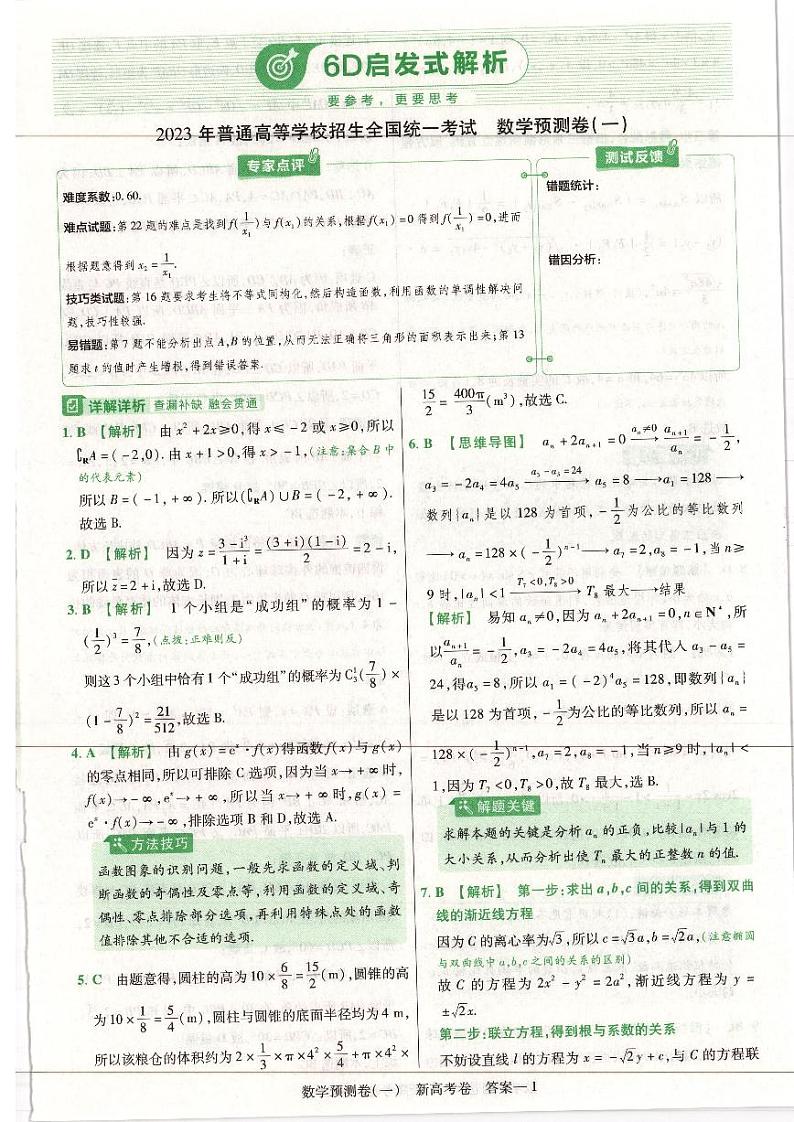 6D启发式解析
要参考,更要思考
2023年普通高等学校招生全国统一考试 数学预测卷(一)
专家点评
难度系数:0.60.
难点试题:第22题的难点是找到f(1/x₁)与f(x₁)的关系,根据f(x₁)=0得到f(1/x₁)=0,进而
根据题意得到x₂=1/x₁.
技巧类试题:第16题要求考生将不等式同构化,然后构造函数,利用函数的单调性解决问
题,技巧性较强.
易错题:第7题不能分析出点A,B的位置,从而无法正确将三角形的面积表示出来;第13
题求t的值时产生增根,得到错误答案.
测试反馈
错题统计:
错因分析:
详解详析 查漏补缺 融会贯通
1. B 【解析】 由x²+2x≥0,得x≤-2或x≥0,所以
∁RA=(-2,0).由x+1>0,得x>-1,(注意:集合B中
的代表元素)
所以B=(-1,+∞).所以(∁RA)∪B=(-2,+∞).
故选B.
2. D 【解析】 因为z=(3-i³)/(1+i)=(3+i)(1-i)/2=2-i,
所以z̄=2+i,故选D.
3. B 【解析】 1个小组是“成功组”的概率为1-
(1/2)³=7/8,(点拨:正难则反)
则这3个小组中恰有1个“成功组”的概率为C₃¹(7/8)×
(1-7/8)²=21/512,故选B.
4. A 【解析】 由g(x)=eˣ·f(x)得函数f(x)与g(x)
的零点相同,所以可排除C选项,因为当x→+∞时,
f(x)→-∞,eˣ→+∞,所以当x→+∞时,g(x)=
eˣ·f(x)→-∞,排除选项B和D,故选A.
方法技巧
函数图象的识别问题,一般先求函数的定义域、判
断函数的奇偶性及零点等,利用函数的定义域、奇
偶性、零点排除部分选项,再利用特殊点处的函数
值排除其他不合适的选项.
5. C 由题意得,圆柱的高为10×6/8=15/2(m),圆锥的高
为10×1/8=5/4(m),圆柱与圆锥的底面半径均为4 m,
所以该粮仓的体积约为2×1/3×π×4²×5/4+π×4²×
15/2=400π/3(m³),故选C.
6. B 【思维导图】 aₙ+2aₙ₊₁=0 —aₙ≠0→ aₙ₊₁/aₙ=-1/2,
a₃=-2a₄=4a₅ —a₃-a₅=24→ a₅=8→a₁=128→
数列{aₙ}是以128为首项,-1/2为公比的等比数列
→aₙ=128×(-1/2)ⁿ⁻¹→a₇=2,a₈=-1,当n≥
9时,|aₙ|<1 —T₇<0,T₈>0→ T₈最大→结果
【解析】 易知aₙ≠0,因为aₙ+2aₙ₊₁=0,n∈N*,所
以aₙ₊₁/aₙ=-1/2,a₃=-2a₄=4a₅,将其代入a₃-a₅=
24,得a₅=8,所以a₁=(-2)⁴a₅=128,即数列{aₙ}
是以128为首项,-1/2为公比的等比数列,所以aₙ=
128×(-1/2)ⁿ⁻¹,a₇=2,a₈=-1,当n≥9时,|aₙ|<
1,因为T₇<0,T₈>0,故T₈最大,选B.
解题关键
求解本题的关键是分析aₙ的正负,比较|aₙ|与1的
大小关系,从而分析出使Tₙ最大的正整数n的值.
7. B 【解析】 第一步:求出a,b,c间的关系,得到双曲
线的渐近线方程
因为C的离心率为√3,所以c=√3a,b=√2a,(注意椭圆
与双曲线中a,b,c之间的关系的区别)
故C的方程为2x²-y²=2a²,渐近线方程为y=
±√2x.
第二步:联立方程,得到根与系数的关系
不妨设直线l的方程为x=-√2y+c,与C的方程联
数学预测卷(一) 新高考卷 答案—1